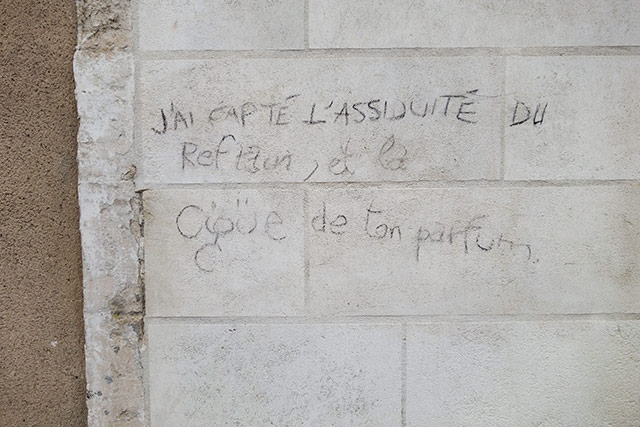 J'AI CAPTÉ L'ASSIDUITÉ DU
Refrain, et la
de ton parfum